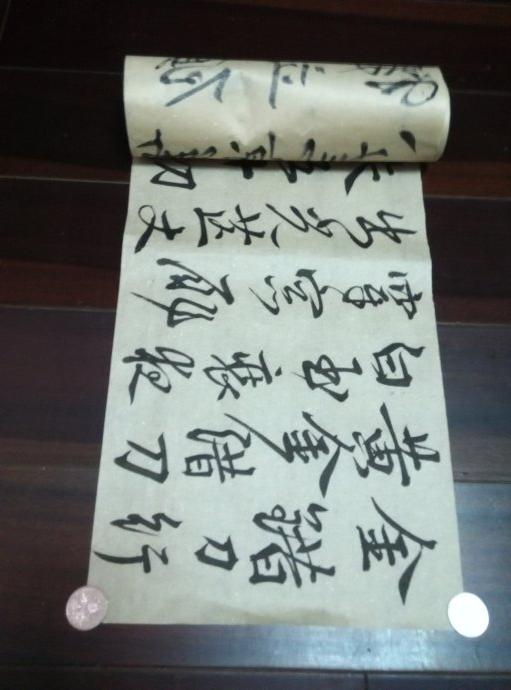 金錯刀行
黄金錯刀
白玉裝夜
穿窗扉
出光芒丈
夫五十功